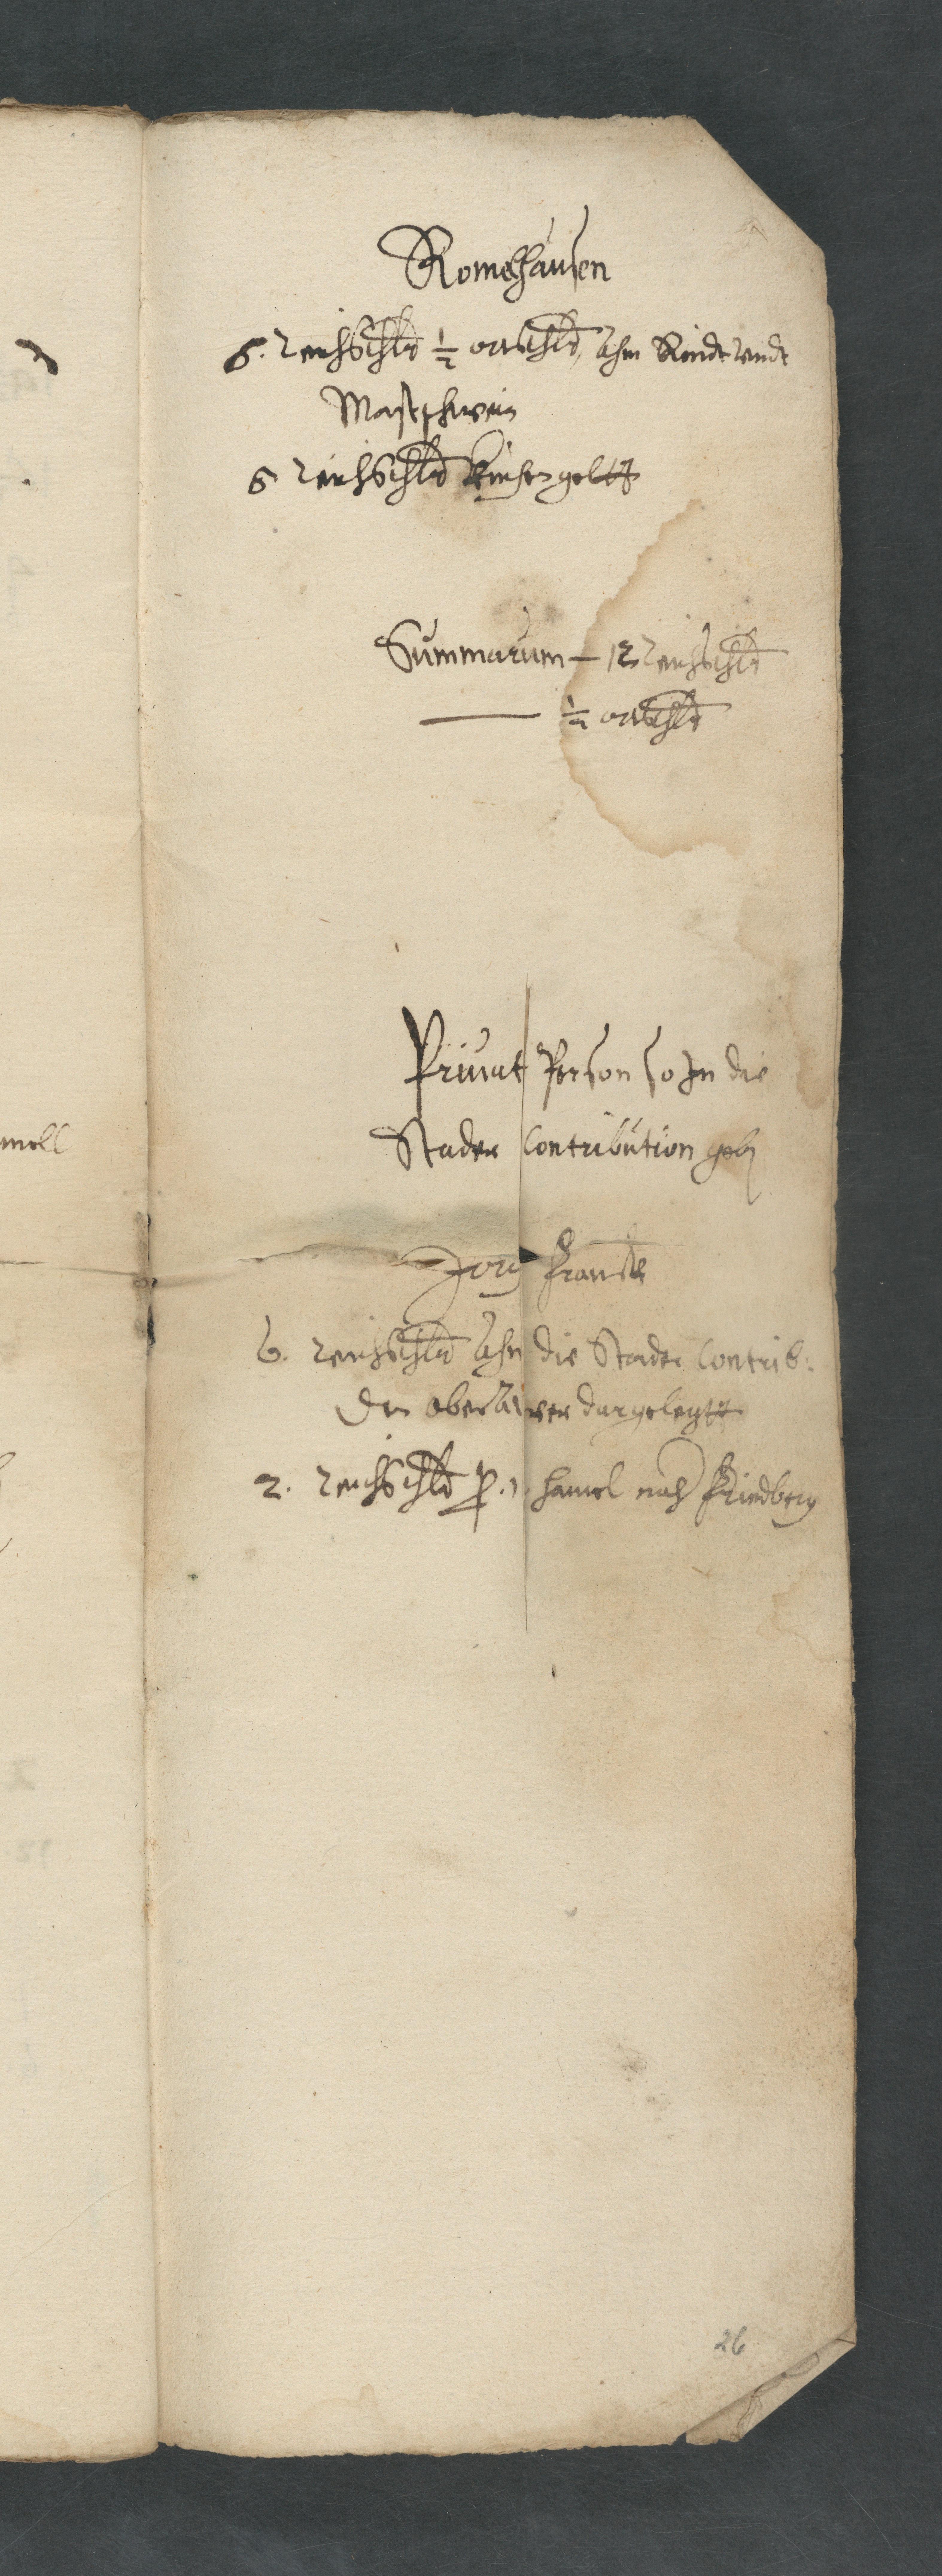 Romshausen
6. Reichsthlr ½ ortsthlr, ahn Rindt vndt
Mastschwein
6 Reichsthlr Küchengeltt
Summarum – 12 Reichsthlr
½ ortsthlr
Privat Person so In die
Stader Contribution geben
Jorg Franck
6. Reichsthlr ahn die Stader Contrib:
Den dargelegtt
2. Reichsthlr p. 1. hamel nach Friedberg
26
mell